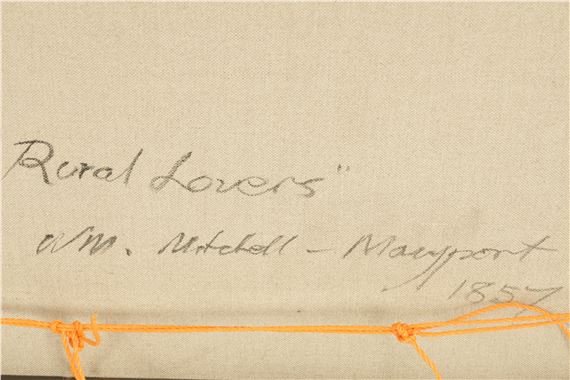 Rural Lovers"
Wm. Mitchell – Maryport
1857